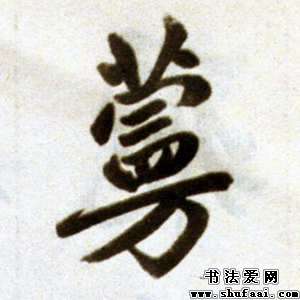 蔓
书法爱网
www.shufaai.com